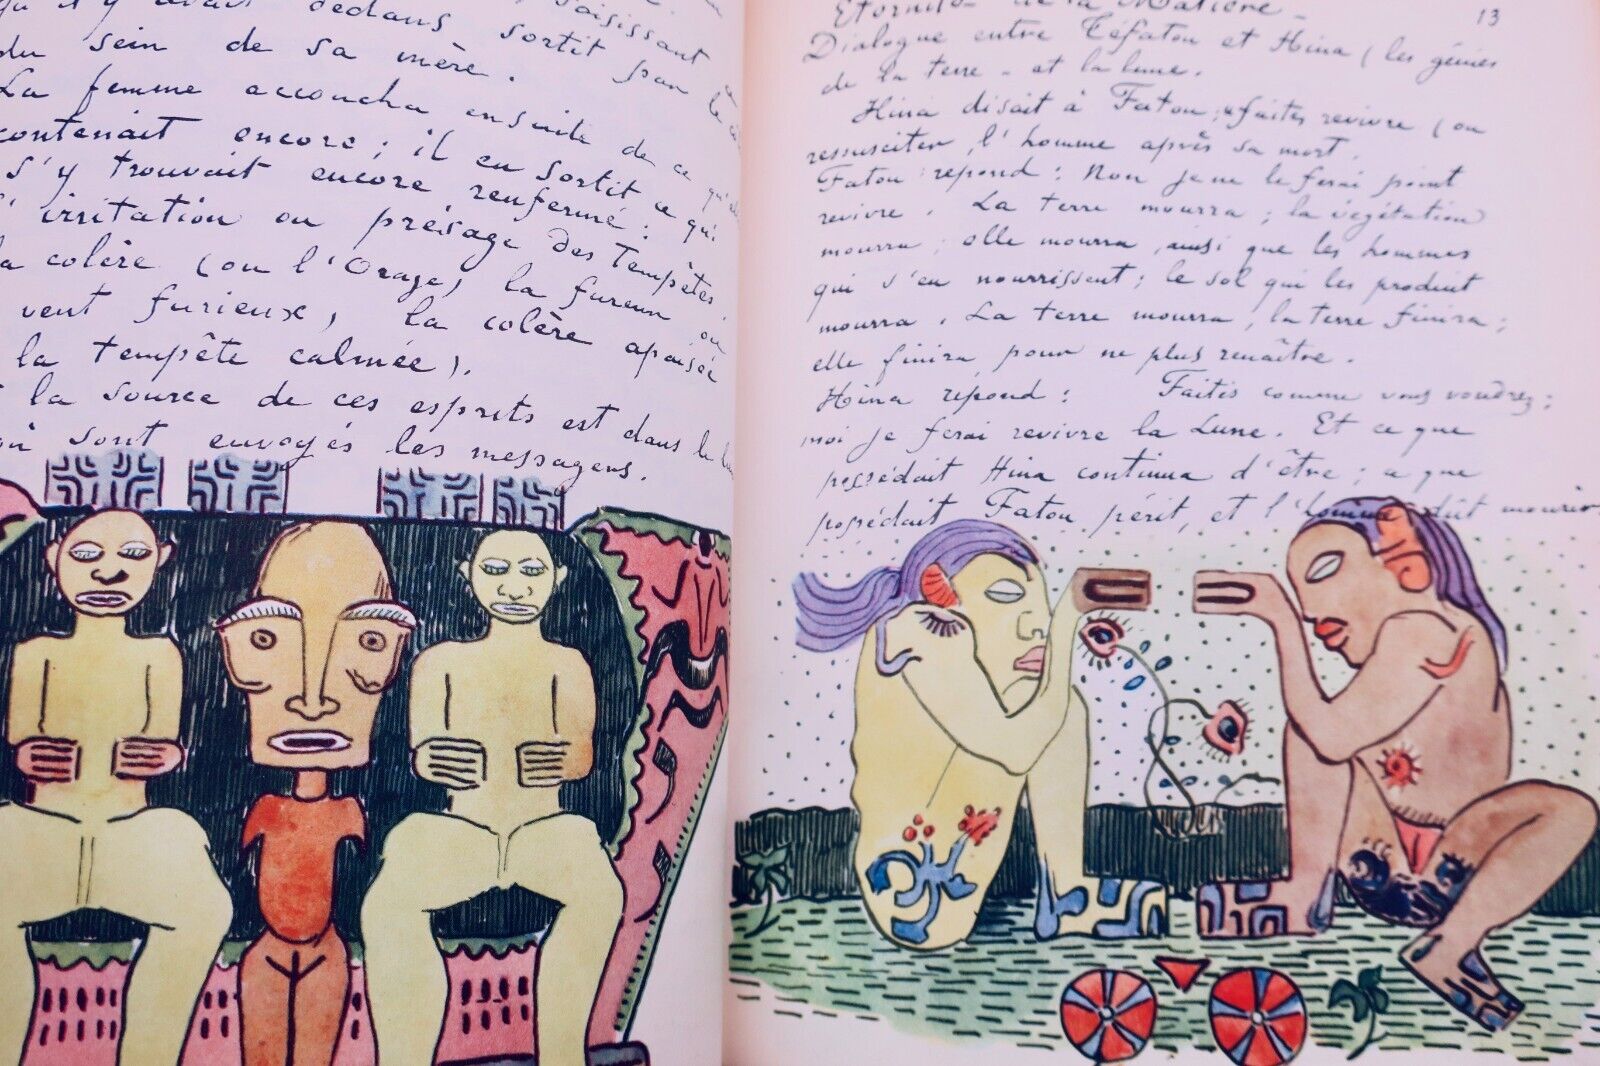 qu'il y avait dedans sortit par le
du sein de sa mère.
La femme accoucha ensuite de ce qu'elle
contenait encore; il en sortit ce qui
s'y trouvait encore renfermé:
l'irritation ou présage des Tempêtes,
la colère (ou l'Orage, la fureur ou
vent furieux, la colère apaisée
la tempête calmée).
la source de ces esprits est dans le
sont envoyés les messagers.
13
Eternité de la Matière –
Dialogue entre Téfatou et Hina (les génies
de la terre – et la lune.
Hina disait à Fatou; « faites revivre (ou
ressusciter, l'homme après sa mort.
Fatou répond: Non je ne le ferai point
revivre. La terre mourra; la végétation
mourra; elle mourra, ainsi que les hommes
qui s'en nourrissent; le sol qui les produit
mourra. La terre mourra, la terre finira;
elle finira pour ne plus renaître.
Hina répond: Faites comme vous voudrez;
moi je ferai revivre la Lune. Et ce que
possédait Hina continua d'être; ce que
possédait Fatou périt, et l'homme dût mourir